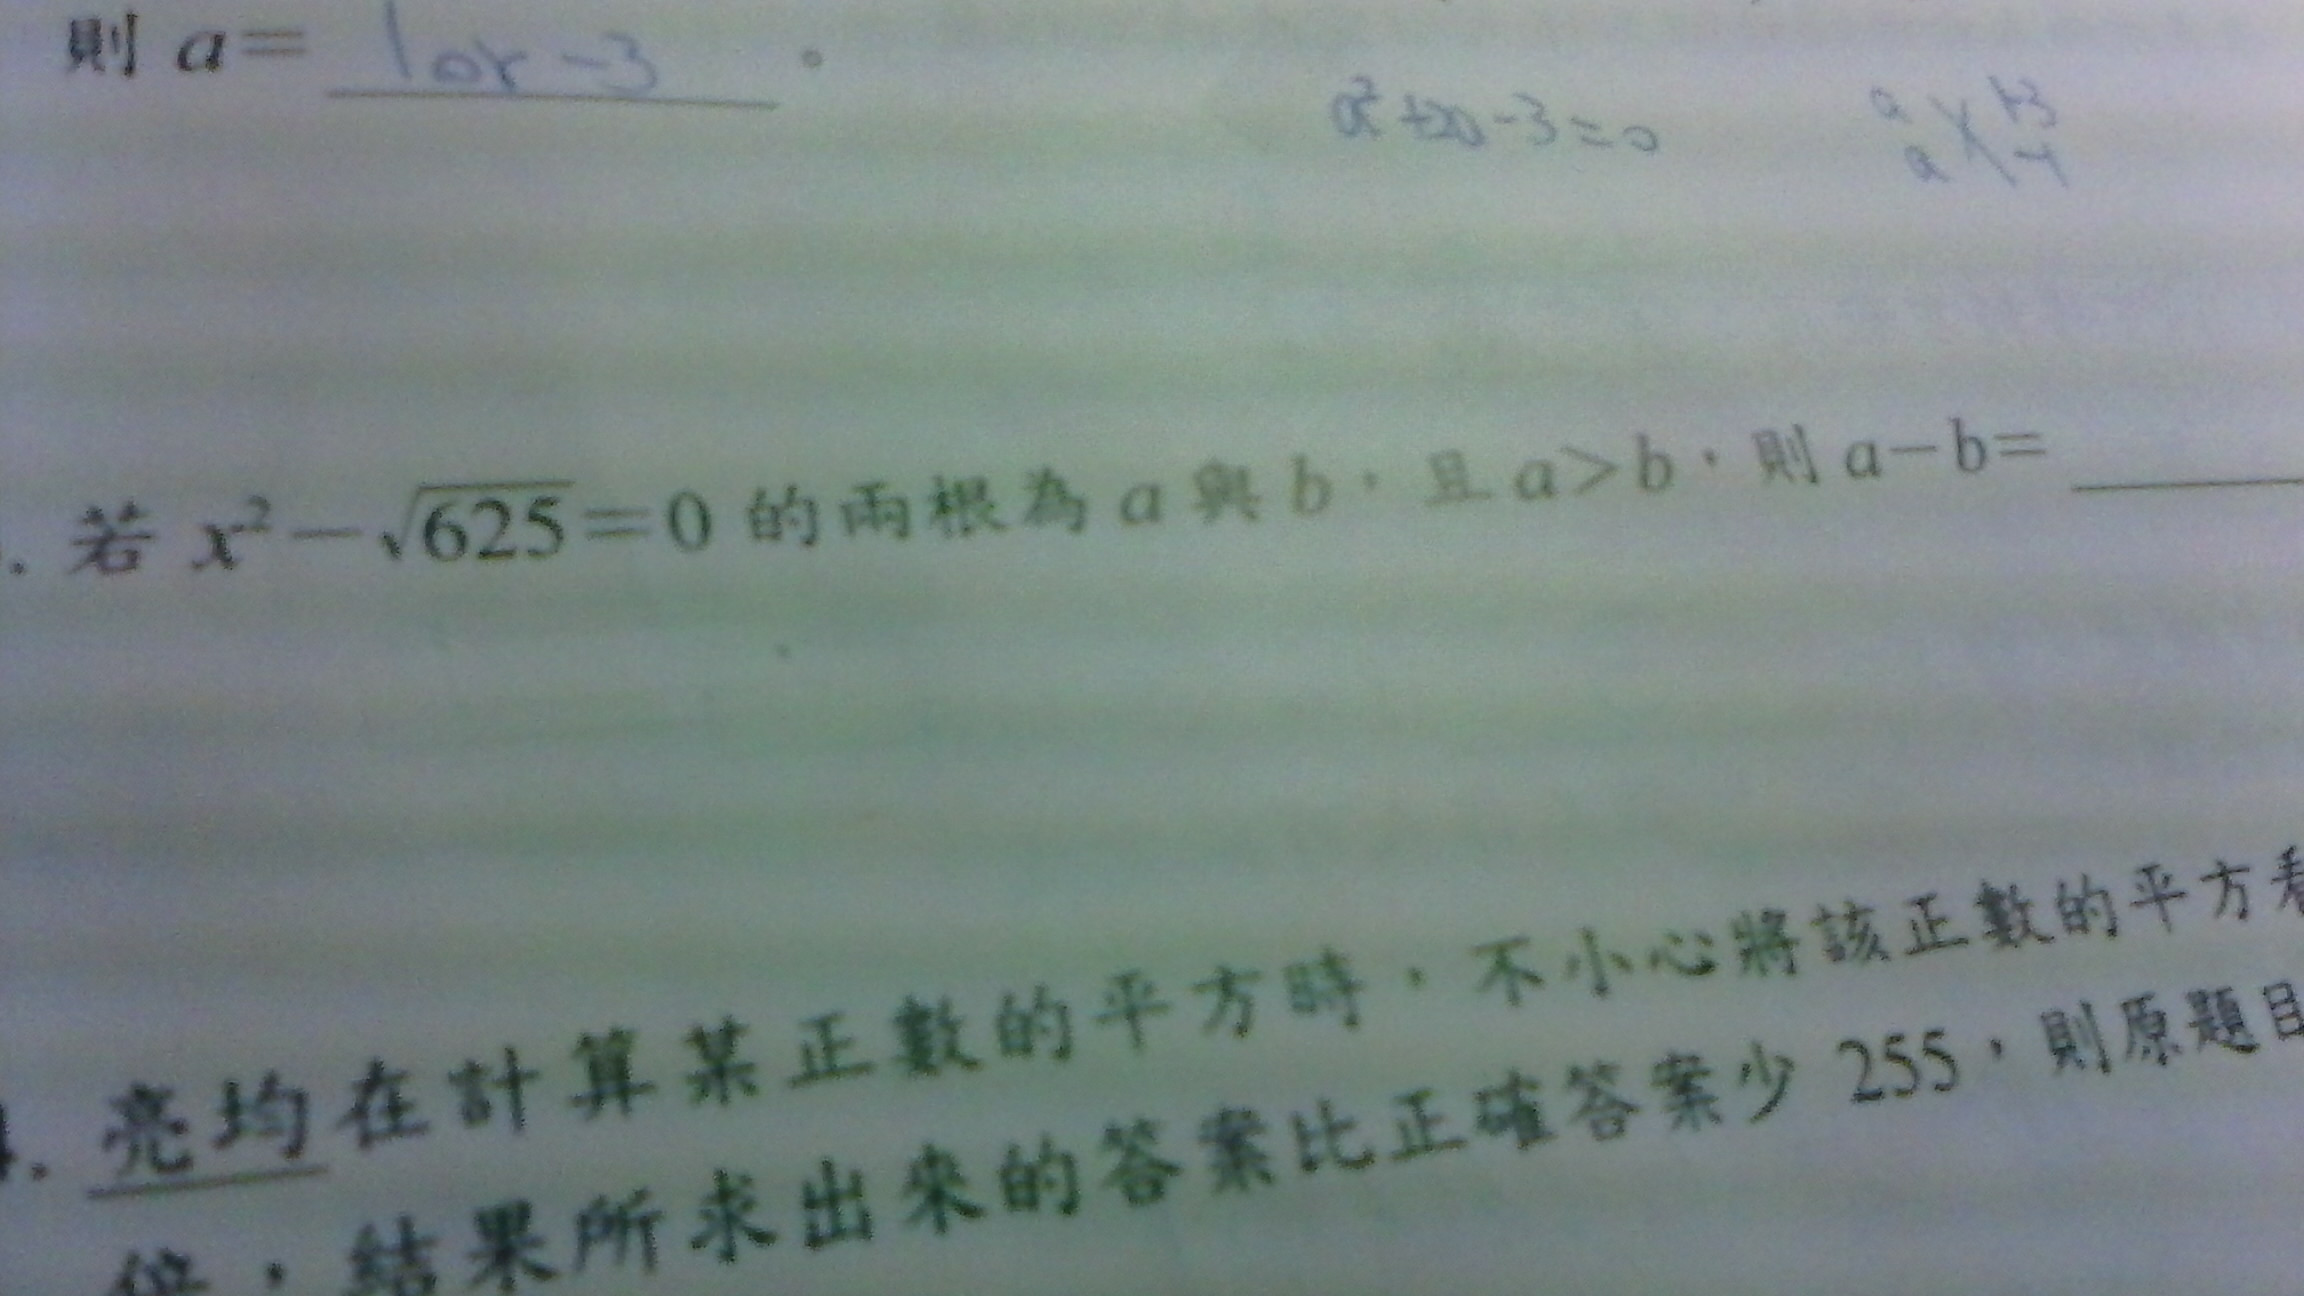 則 a= 1or-3 。
a²+2a-3=0
a +3
a -1
. 若 x²-√625=0 的兩根為 a 與 b,且 a>b,則 a-b=
. 亮均在計算某正數的平方時,不小心將該正數的平方看
倍,結果所求出來的答案比正確答案少 255,則原題目